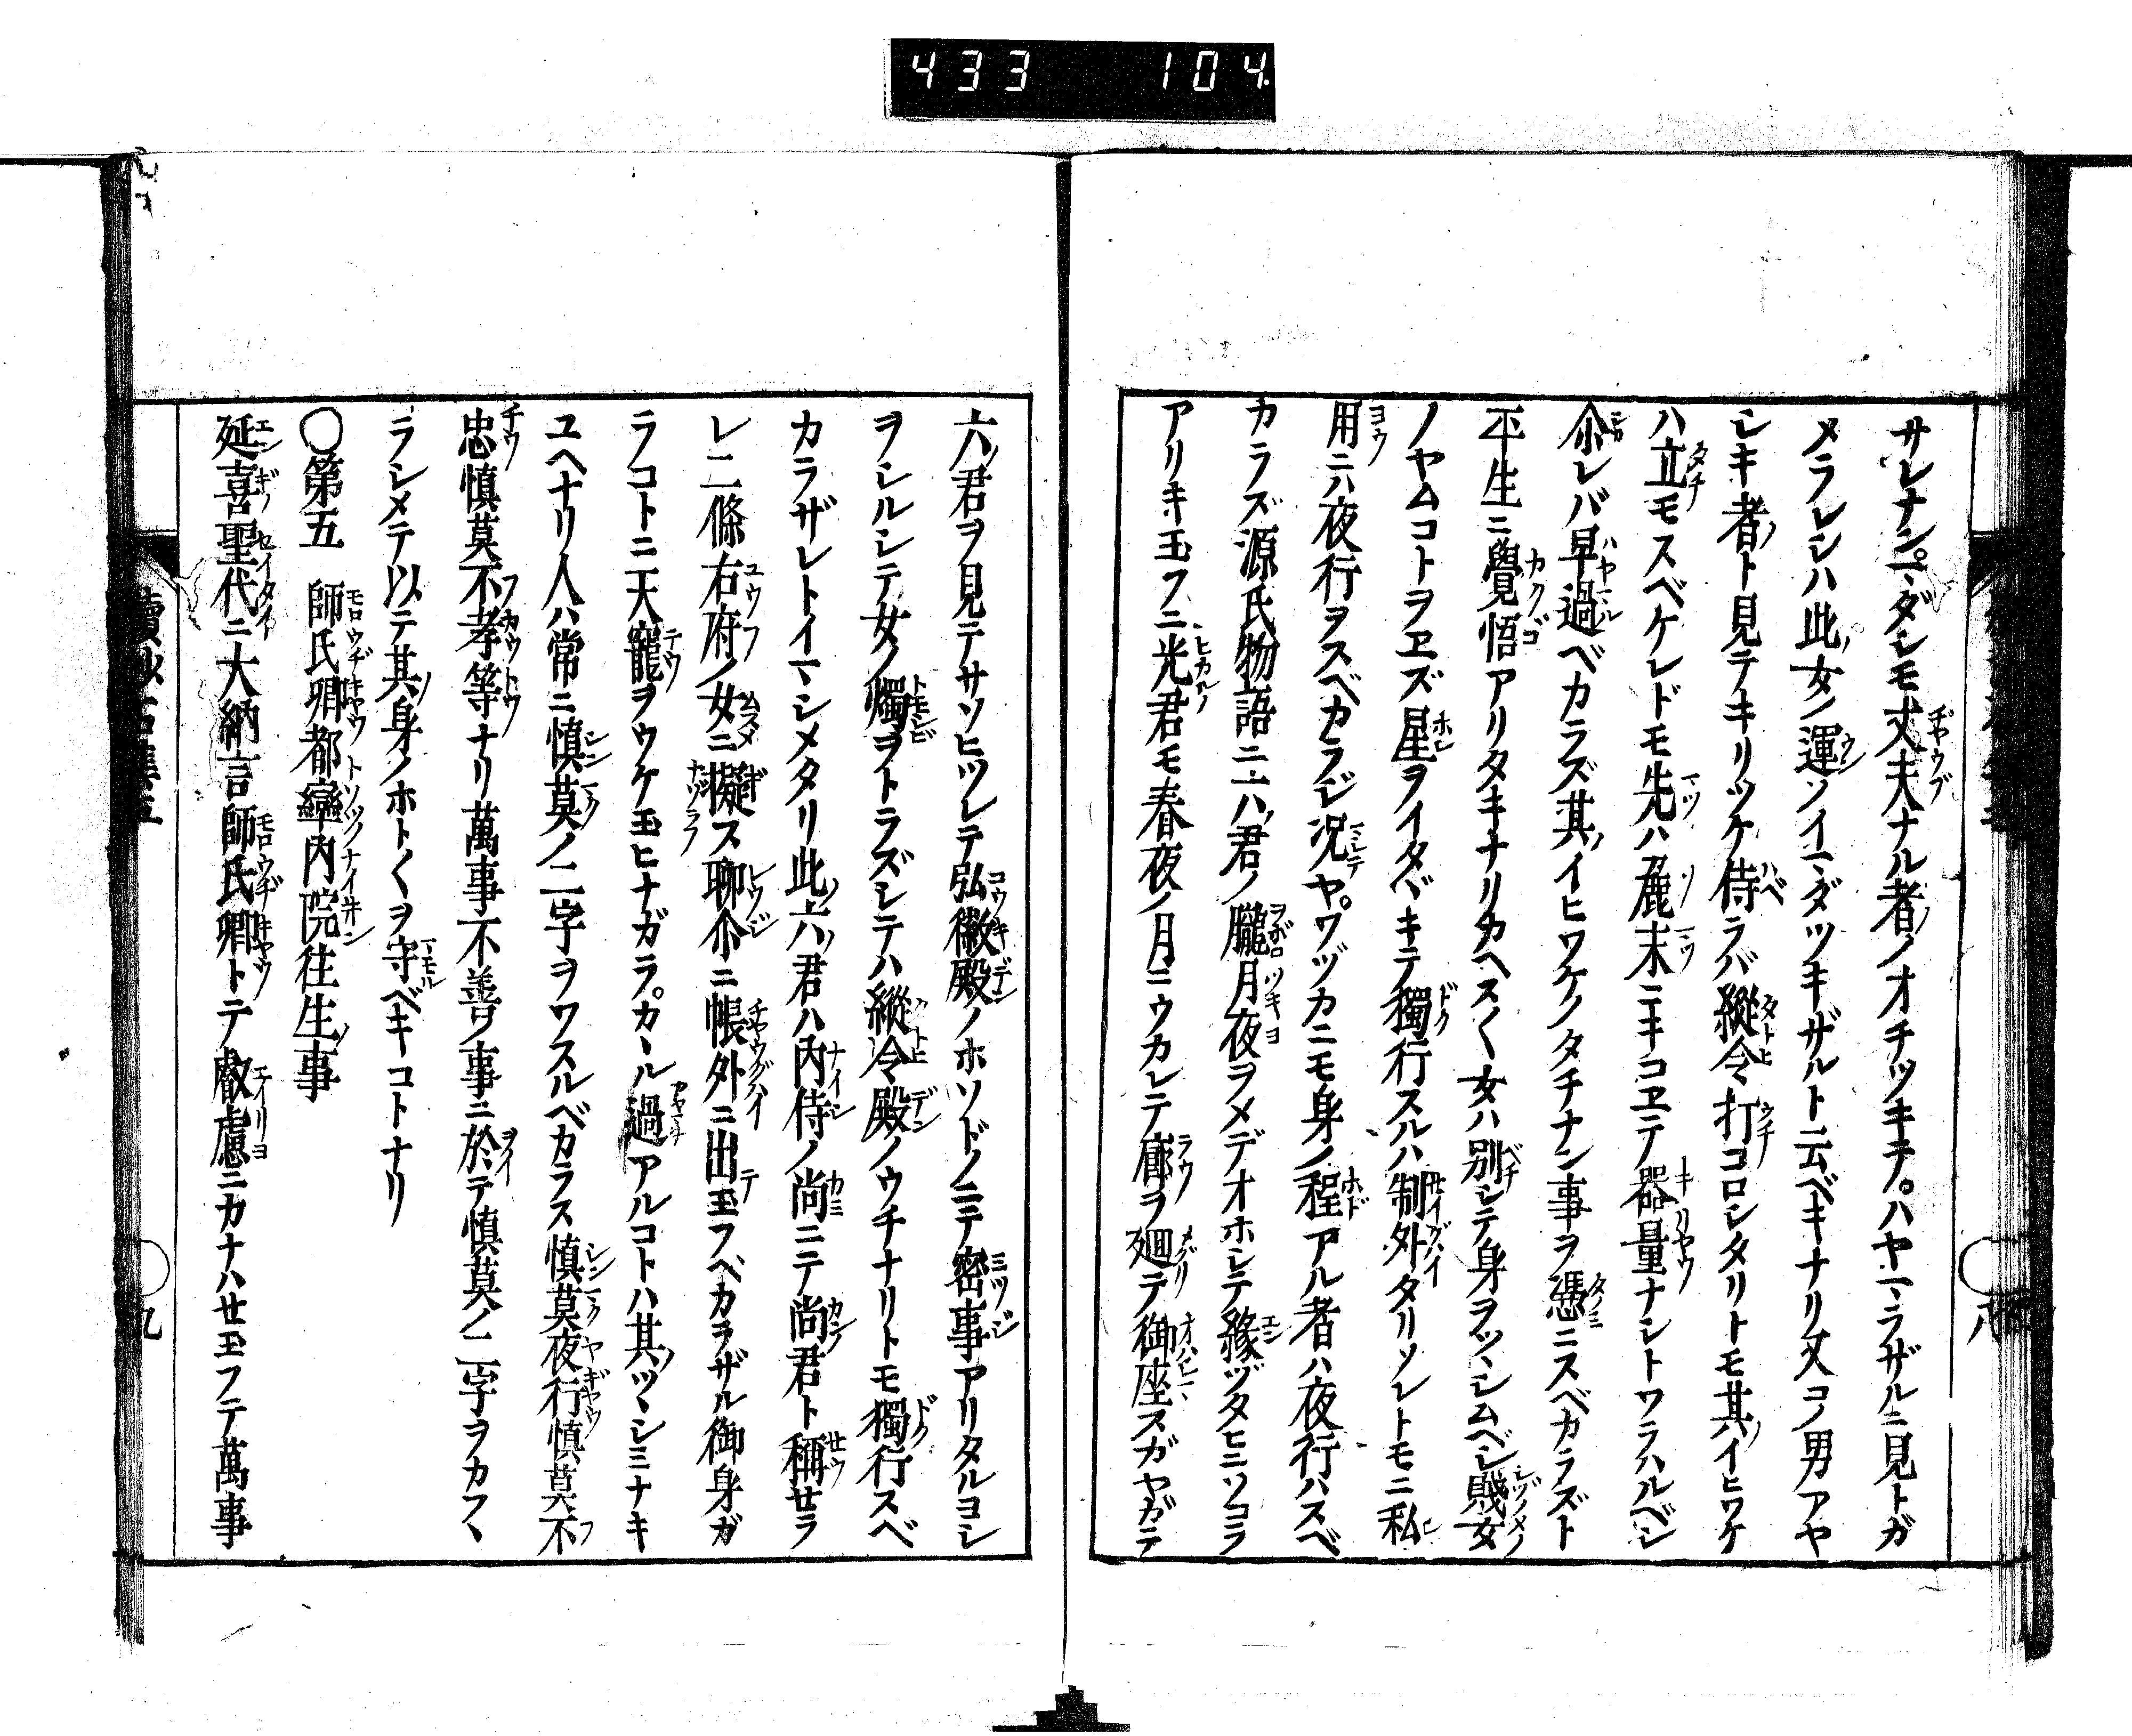 433 104
サレナン。マダシモ丈夫ナル者ノオチツキテ。ハヤマラザルニ見トガ
メラレシハ此女ノ運ソイマダツキザルト云ベキナリ又コノ男アヤ
シキ者ト見テキリツケ侍ラバ縱令打コロシタリトモ其イヒワケ
ハ立モスベケレドモ先ハ麁末ニキコヱテ器量ナシトワラハルベシ
尒レバ早過ベカラズ其イヒワケノタチナン事ヲ憑ニスベカラズト
平生ニ覺悟アリタキナリカヘスく女ハ別シテ身ヲツヽシムベシ賤女
ノヤムコトヲヱズ星ヲイタヾキテ獨行スルハ制外タリソレトモニ私
用ニハ夜行ヲスベカラジ况ヤ。ワヅカニモ身ノ程アル者ハ夜行ハスベ
カラズ源氏物語ニ六ハ君ノ朧月夜ヲメデオホシテ緣ヅタヒニソコラ
アリキ玉フニ光君モ春夜ノ月ニウカレテ廊ヲ廻テ御座スガヤガテ
六ノ君ヲ見テサソヒツレテ弘徽殿ノホソドノニテ密事アリタルヨシ
ヲシルシテ女ノ燭ヲトラズシテハ縱令殿ノウチナリトモ獨行スベ
カラザレトイマシメタリ此六ノ君ハ內侍ノ尚ニテ尚君ト稱せラ
レ二條右府ノ女ニ擬ス聊尒ニ帳外ニ出玉フベカラザル御身ガ
ラコトニ天寵ヲウケ玉ヒナガラ。カヽル過アルコトハ其ツヽシミナキ
ユヘナリ人ハ常ニ慎莫ノ二字ヲワスルベカラス慎莫夜行慎莫不
忠慎莫不孝等ナリ萬事不善ノ事ニ於テ慎莫ノ二字ヲカフヽ
ラシメテ以テ其身ノホトくヲ守ベキコトナリ
○第五 師氏卿都率內院往生事
延喜聖代ニ大納言師氏卿トテ叡慮ニカナハせ玉フテ萬事
九